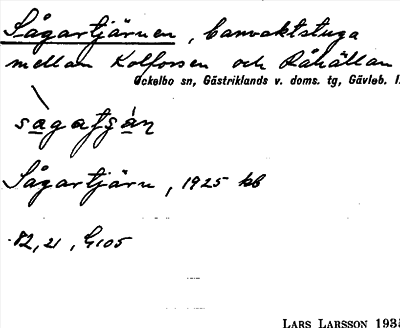 Sågartjärnen, banvaktstuga
mellan Kolforsen och Råhällan
Ockelbo sn, Gästriklands v. doms. tg, Gävleb. l.
Sågartjärn, 1925 kb
82, 21, G105
LARS LARSSON 1935